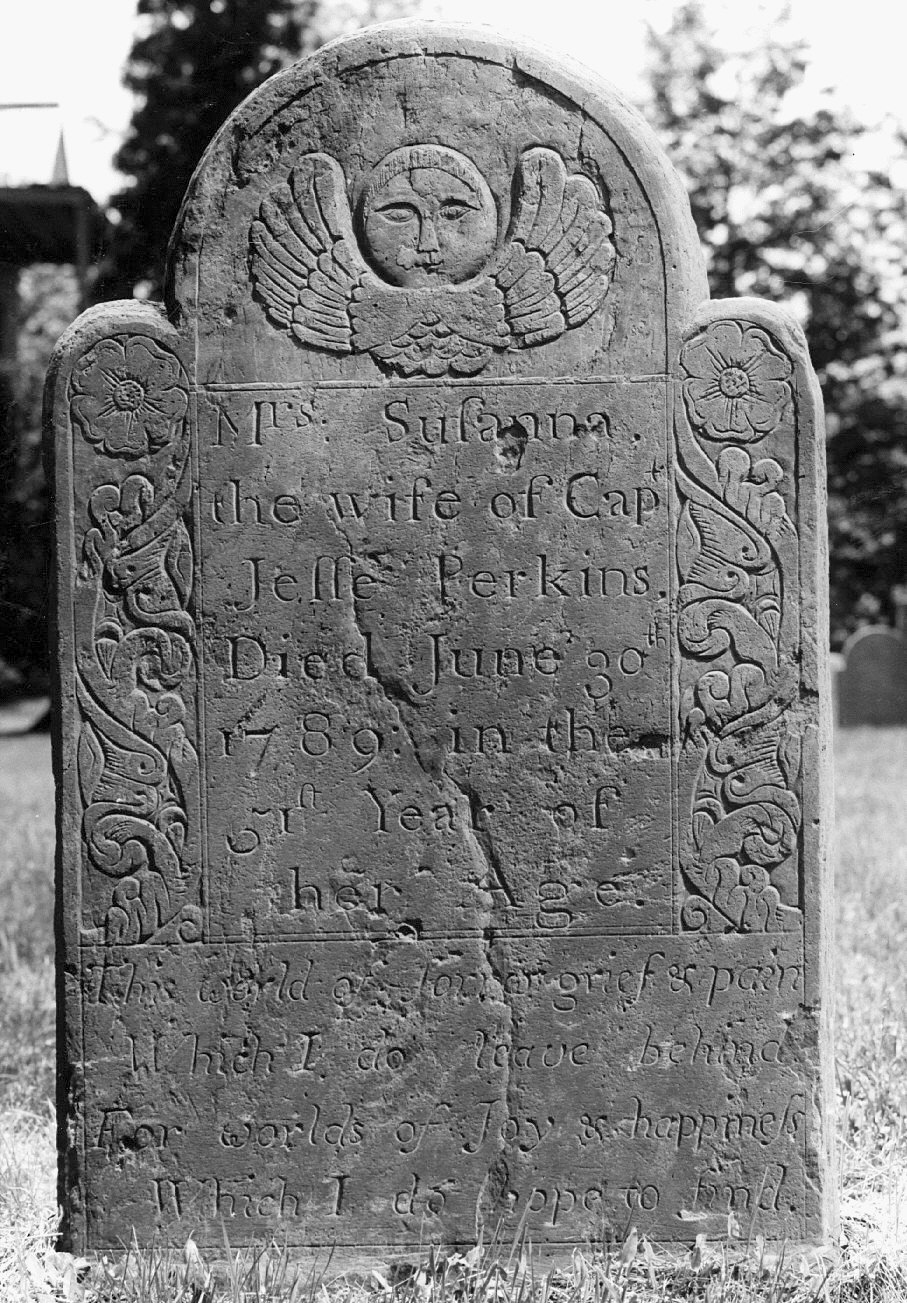 Mrs. Suſanna
the wife of Capt
Jeſſe Perkins.
Died June 30th
1789. in the
Year of
her Age.
This world of ſorrow grief & paen
Which I do leave behind
For worlds of Joy & happineſs
Which I do hope to find.